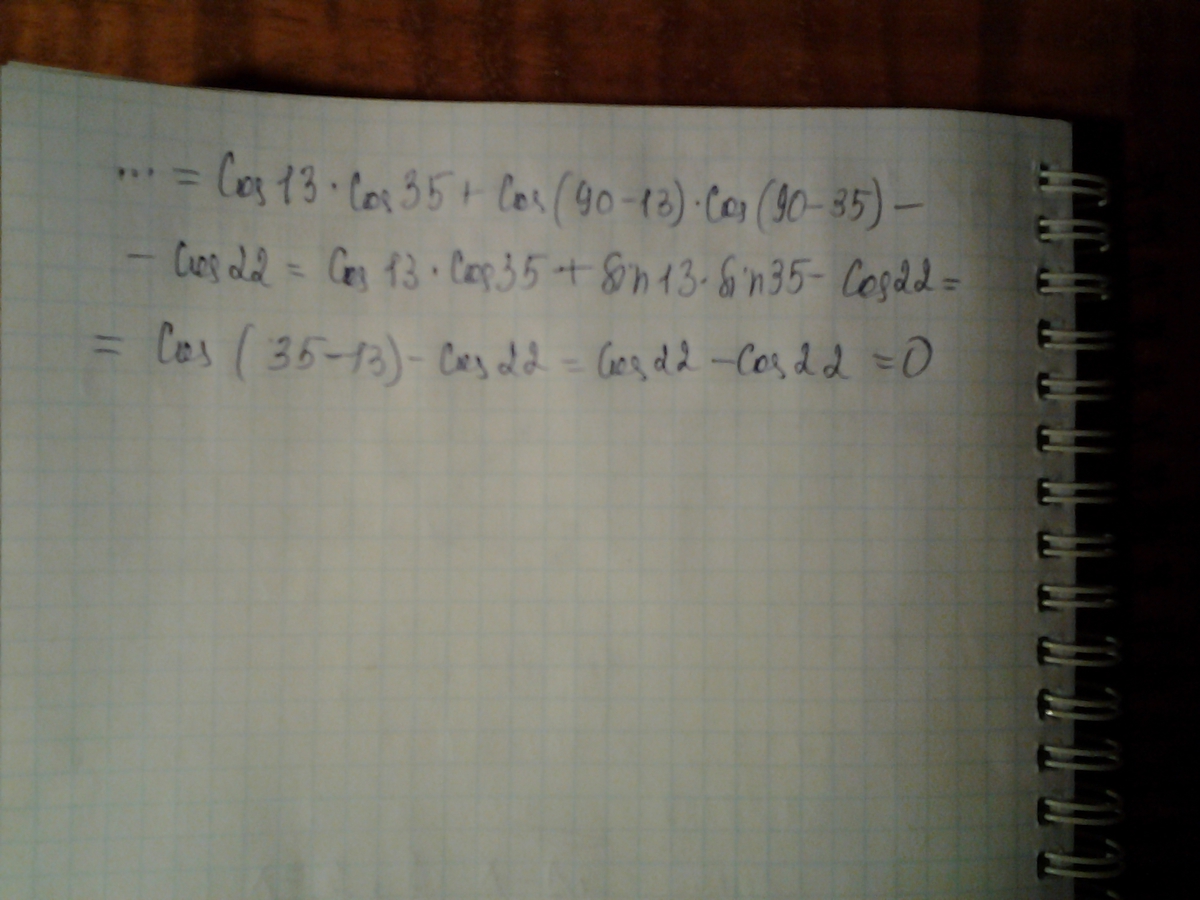 ... = Cos 13 · Cos 35 + Cos (90 - 13) · Cos (90 - 35) -
- Cos 22 = Cos 13 · Cos 35 + Sin 13 · Sin 35 - Cos 22 =
= Cos ( 35 - 13) - Cos 22 = Cos 22 - Cos 22 = 0